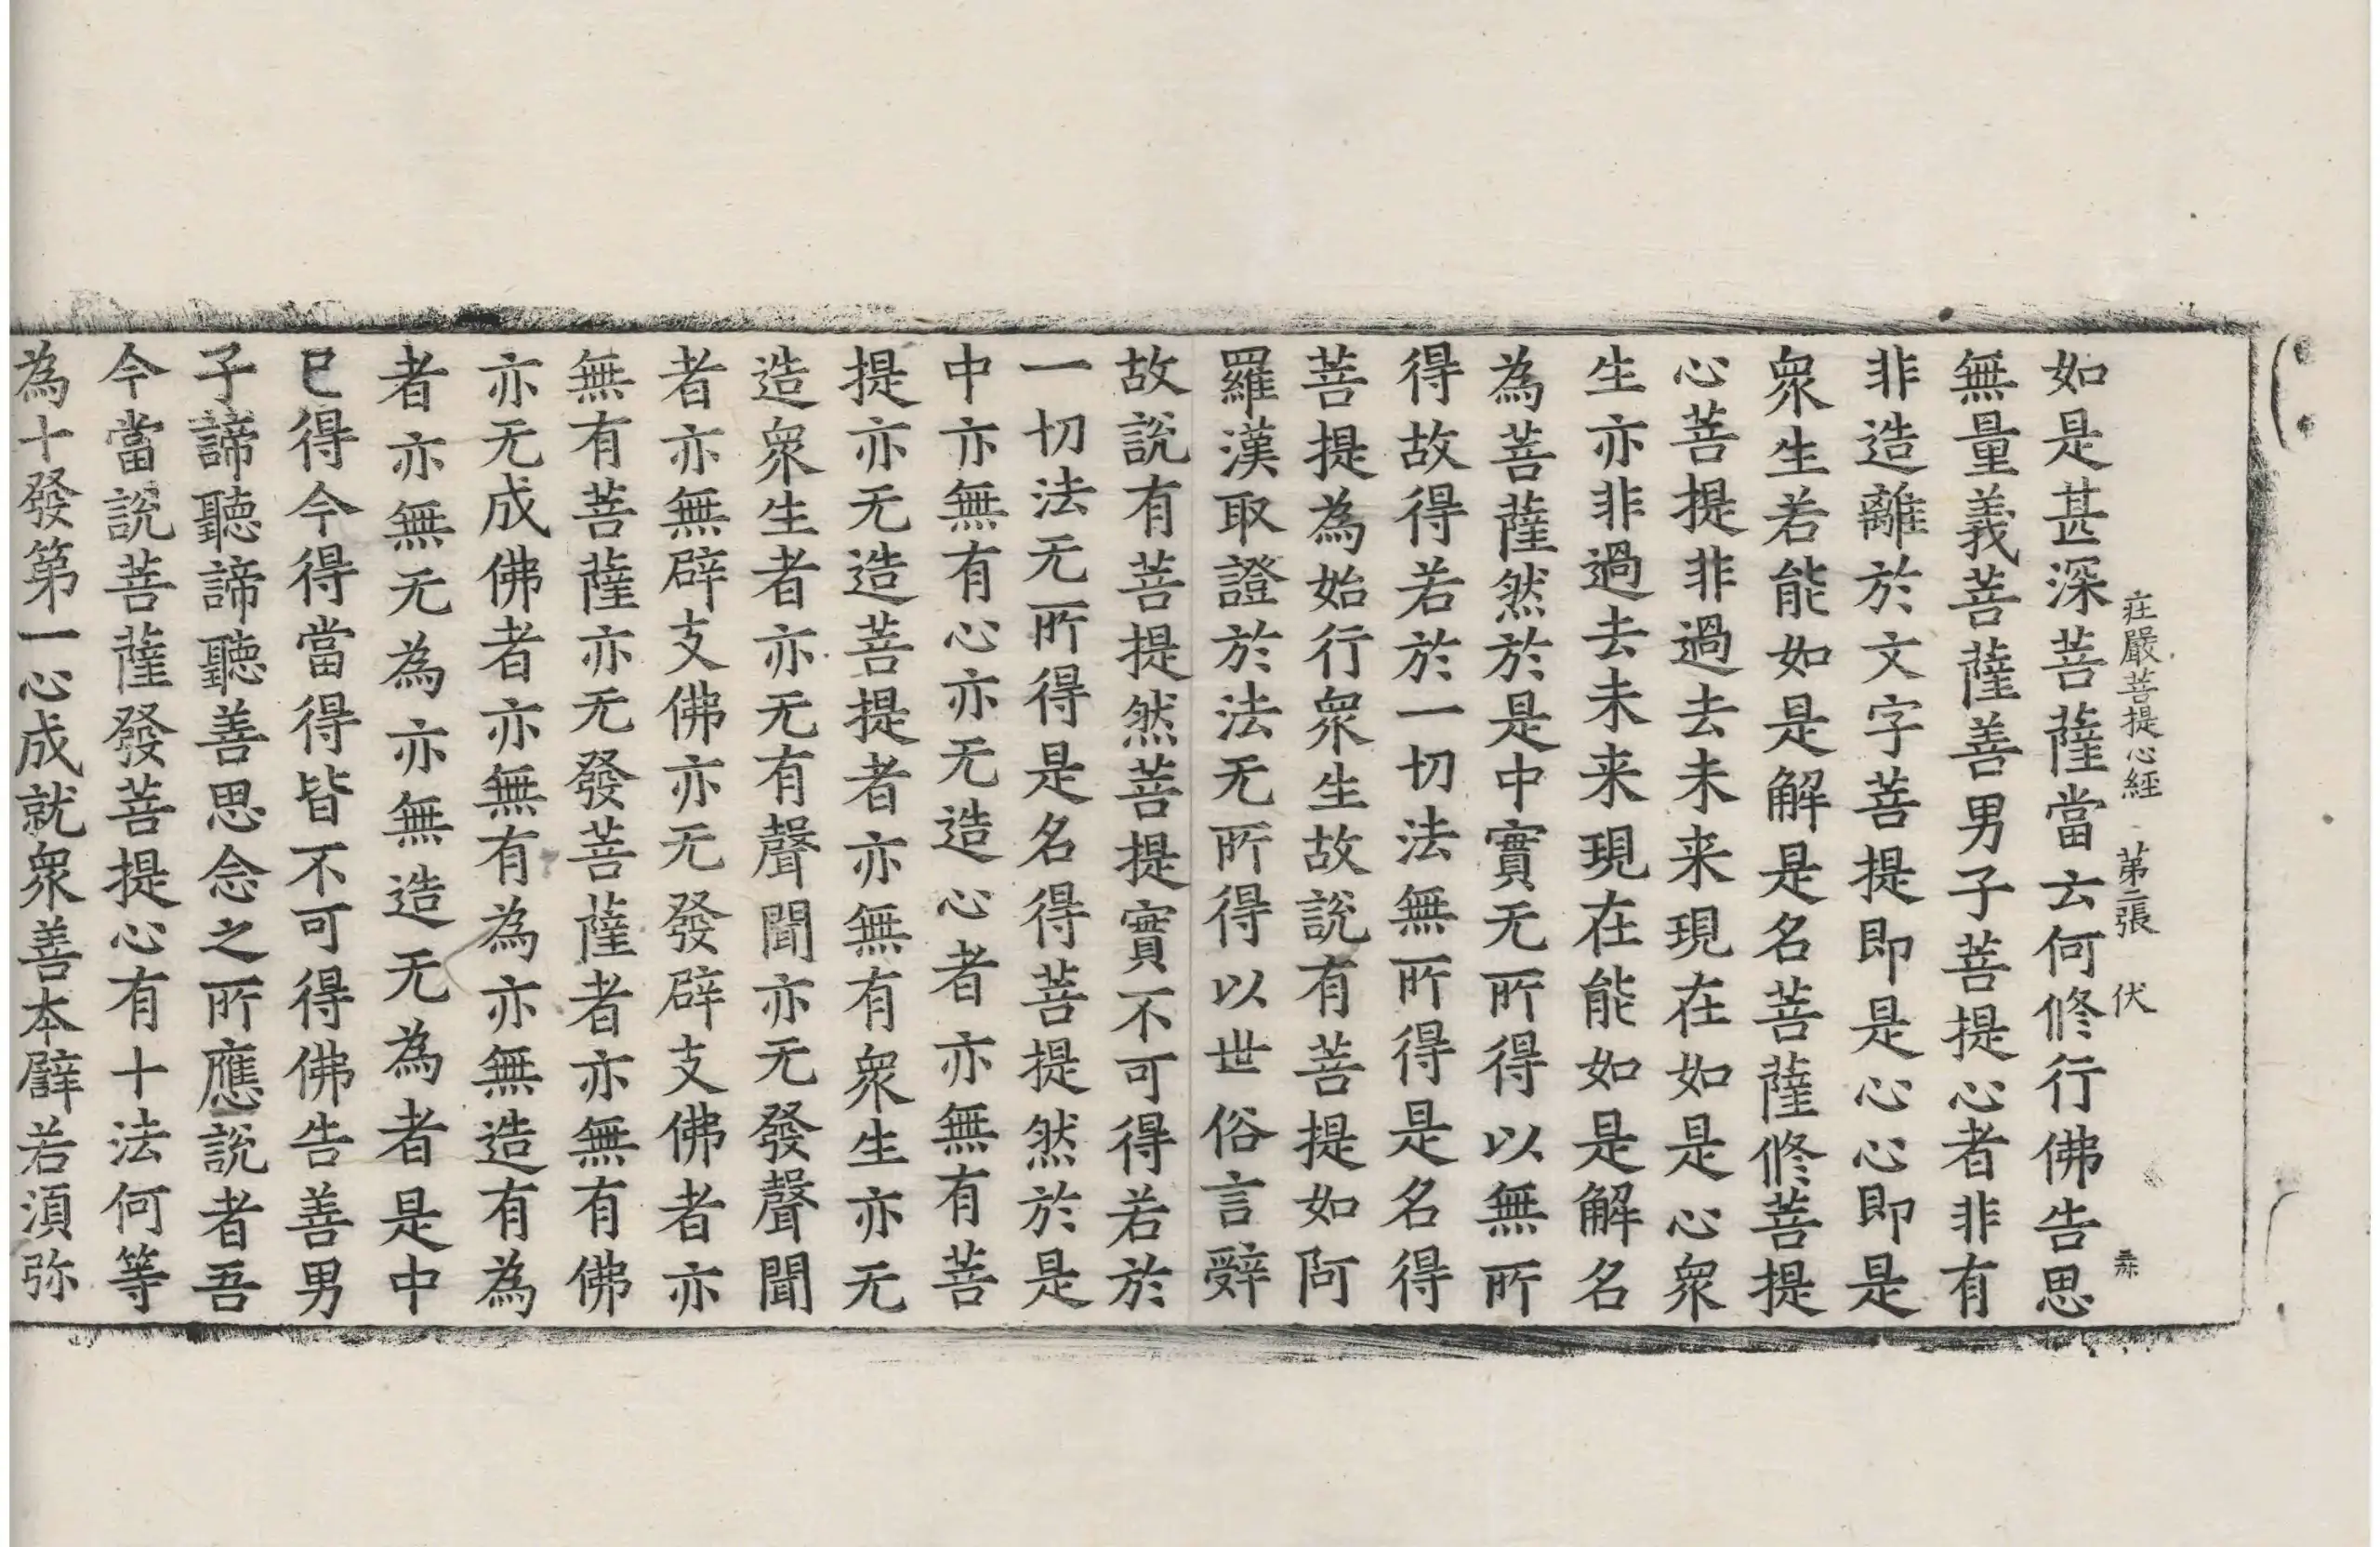 庄嚴菩提心經　第二張　伏
如是甚深菩薩當云何修行佛告思
無量義菩薩善男子菩提心者非有
非造離於文字菩提即是心心即是
衆生若能如是解是名菩薩修菩提
心菩提非過去未来現在如是心衆
生亦非過去未来現在能如是解名
為菩薩然於是中實无所得以無所
得故得若於一切法無所得是名得
菩提為始行衆生故說有菩提如阿
羅漢取證於法无所得以世俗言辤
故說有菩提然菩提實不可得若於
一切法无所得是名得菩提然於是
中亦無有心亦无造心者亦無有菩
提亦无造菩提者亦無有衆生亦无
造衆生者亦无有聲聞亦无發聲聞
者亦無辟支佛亦无發辟支佛者亦
無有菩薩亦无發菩薩者亦無有佛
亦无成佛者亦無有為亦無造有為
者亦無无為亦無造无為者是中
已得今得當得皆不可得佛告善男
子諦聽諦聽善思念之所應說者吾
今當說菩薩發菩提心有十法何等
為十發第一心成就衆善本譬若湏弥